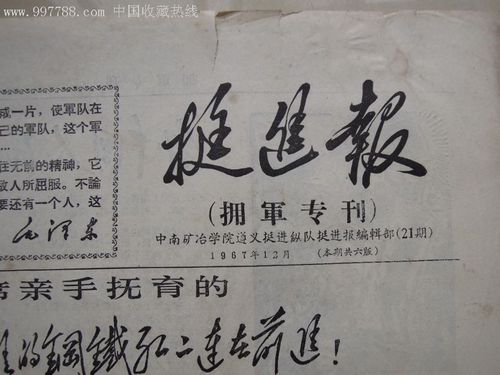 www.997788.com 中国收藏热线
成一片，使軍队在
己的軍队，这个軍
在无前的精神，它
敌人所屈服。不論
要还有一个人，这
毛泽东
挺進報
(拥軍专刊)
中南矿冶学院遵义挺進縱队挺进报編輯部(21期)
1967年12月 (本期共六版)
席亲手抚育的
的鋼鐵紅二連在前進！